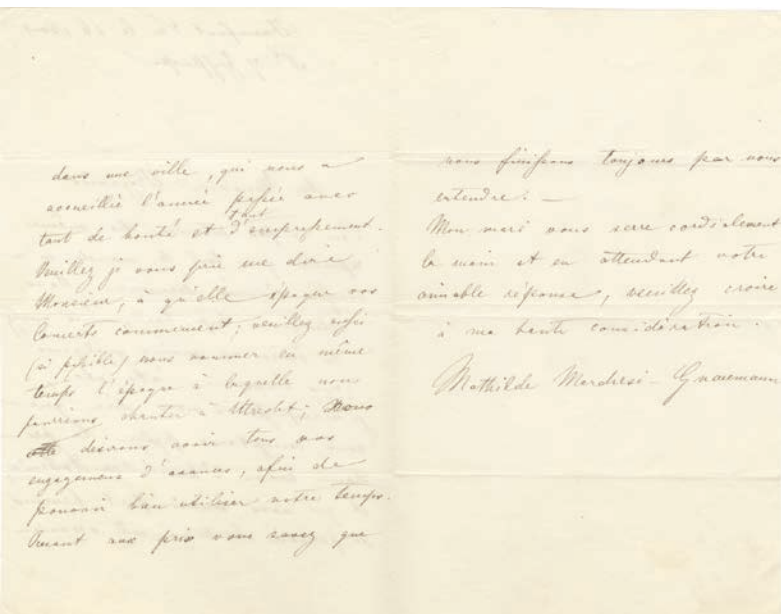 dans une ville, qui nous a
accueillie l'année passée avec
tant de bonté et d'empressement.
tant
Veuillez je vous prie me dire
Monsieur, à qu'elle époque vos
Concerts commencent; veuillez aussi
(si possible) nous nommer en même
temps l'époque à laquelle nous
pourrions chanter à Utrecht; Nous
désirons avoir tous nos
engagemens d'avance, afin de
pouvoir bien utiliser notre temps.
Quant aux prix vous savez que
nous finissons toujours par nous
entendre. —
Mon mari vous serre cordialement
la main et en attendant votre
aimable réponse, veuillez croire
à ma haute considération.
Mathilde Marchesi – Graumann